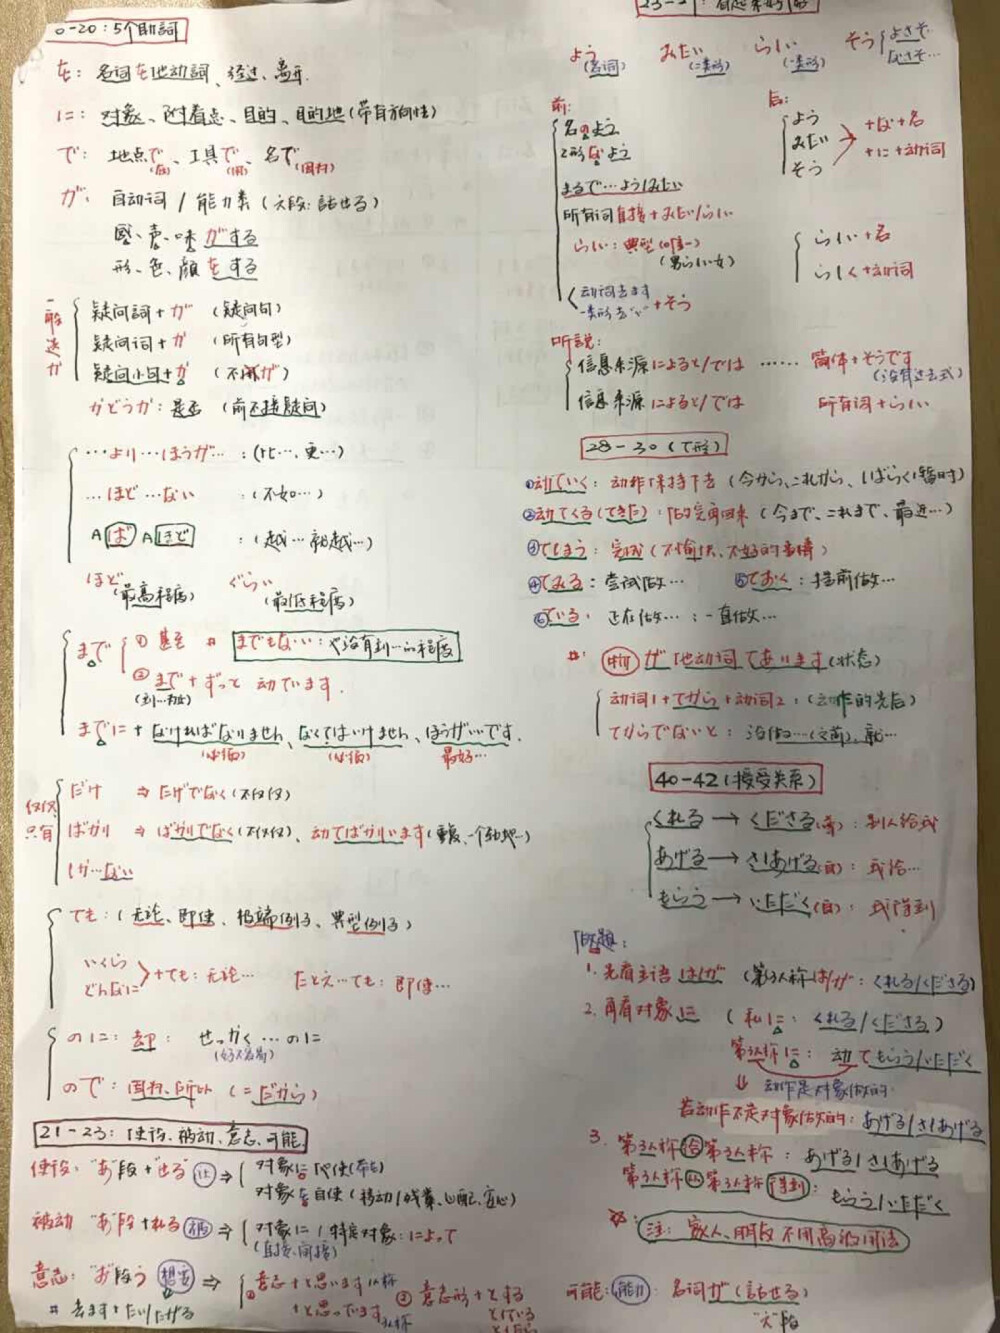 0-20：5个助詞
を：名词を他动詞、经过、离开
に：对象、附着点、目的、目的地(带有方向性)
で：地点で(在)、工具で(用)、名で(因为)
が：自动词 / 能力系（え段：話せる）
声、音、味がする
形、色、顔をする
疑问詞+が（疑问句）
疑问词+か（所有句型）
疑问小句+か（不用が）
かどうか：是否（前不接疑问）
…より…ほうが…：(比…，更…)
…ほど…ない：(不如…)
AばAほど：(越…就越…)
ほど(最高程度) ぐらい(最低程度)
まで ① 甚至 # までもない：没有到…的程度
② まで+ずっと 动ています.
までに+なければなりません、なくてはいけません、ほうがいいです.
(必须) (必须) 最好…
仅仅 只有
だけ ⇒ だけでなく(不仅仅)
ばかり ⇒ ばかりでなく(不仅仅)、动てばかりいます(重复、一个劲地…)
しか…ない
ても：(无论、即使、极端例子、典型例子)
いくら どんなに +ても：无论… たとえ…ても：即使…
のに：却 せっかく…のに
(好不容易)
ので：因为、所以 (=だから)
21-23：使役、被动、意志、可能
使役："あ"段+せる 让 ⇒ 对象に
对象を自使（移动/残業、心配、安心）
被动 "あ"段+れる 被 ⇒ 对象に / 特定对象：によって
(直接、间接)
意志："お"段う 想要 ⇒ ① 意志+と思います
+と思っています ② 意志形+とする
# 去ます+たい/たがる とている
よう(名词) みたい(二类形) らしい(一类形) そう よさそ… なさそ…
前：
名のよう
2形なよう
まるで…よう/みたい
所有词直接+みたい/らしい
らしい：典型(唯一)
(男らしい女)
动词去ます
一类形去"い" +そう
后：
よう
みたい
そう
+な+名
+に+动词
らしい+名
らしく+动词
听説：
信息来源によると/では …… 简体+そうです
(没有过去式)
信息来源によると/では 所有词+らしい
28-30（て形）
①动ていく：动作保持下去（今から、これから、しばらく(暂时)
②动てくる(てきた)：（今まで、これまで、最近…）
③てしまう：完成（不愉快、不好的事情）
④てみる：尝试做… ⑤ておく：提前做…
⑥ている：正在做…：一直做…
#：物が他动词てあります(状态)
动词1+てから+动词2：(动作的先后)
てからでないと：没做…(之前)，就…
40-42（授受关系）
くれる → くださる(尊)：别人给我
あげる → さしあげる(自)：我给…
もらう → いただく(自)：我得到
做题：
1. 先看主语は/が（第3人称は/が：くれる/くださる）
2. 再看对象に（私に：くれる/くださる）
第3人称に：动てもらう/いただく
⇓ 动作是对象做的.
若动作不是对象做的：あげる/さしあげる
3. 第3人称给第3人称：あげる/さしあげる
第3人称从第3人称得到：もらう/いただく
☆：注：家人、朋友不用
可能：能力 名词が（話せる）
"え"段